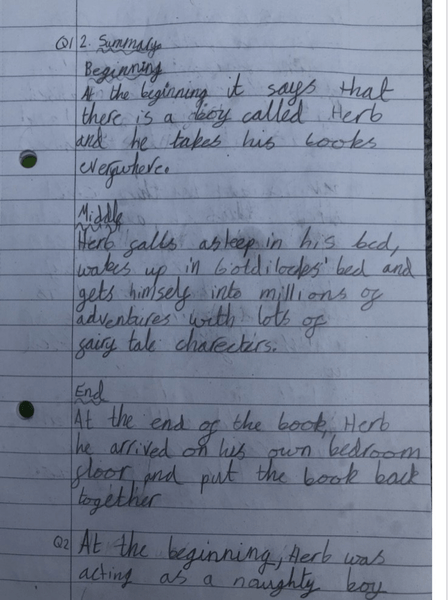 Q1 2. Summary
Beginning
At the beginning it says that
there is a boy called Herb
and he takes his books
everywhere.
Middle
Herb falls asleep in his bed,
wakes up in Goldilocks' bed and
gets himself into millions of
adventures with lots of
fairy tale charecters.
End
At the end of the book, Herb
he arrived on his own bedroom
floor and put the book back
together
Q2 At the beginning, Herb was
acting as a naughty boy